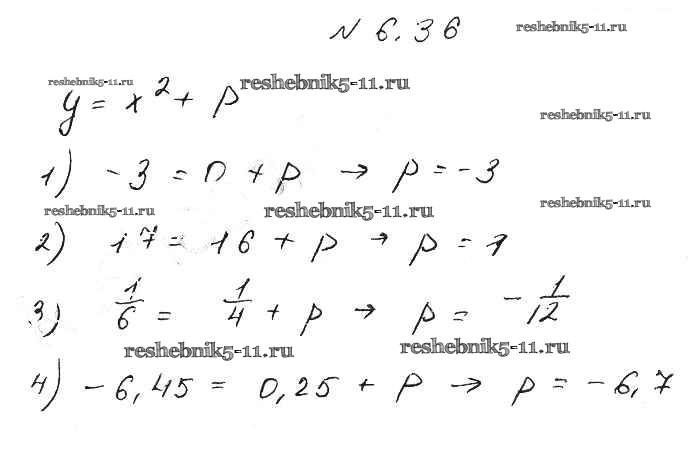 N 6.36 reshebnik5-11.ru
reshebnik5-11.ru reshebnik5-11.ru
y = x² + p
reshebnik5-11.ru
1) -3 = 0 + p → p = -3
reshebnik5-11.ru reshebnik5-11.ru reshebnik5-11.ru
2) 17 = 16 + p → p = 1
3) 1/6 = 1/4 + p → p = -1/12
reshebnik5-11.ru reshebnik5-11.ru
4) -6,45 = 0,25 + p → p = -6,7